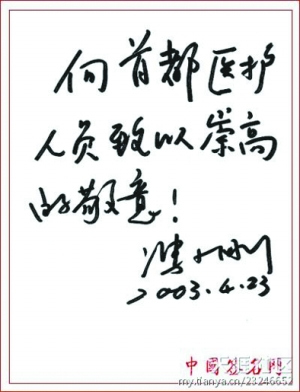 向首都医护
人员致以崇高
的敬意！
2003.4.23
中國签名网
my.tianya.cn/23246652